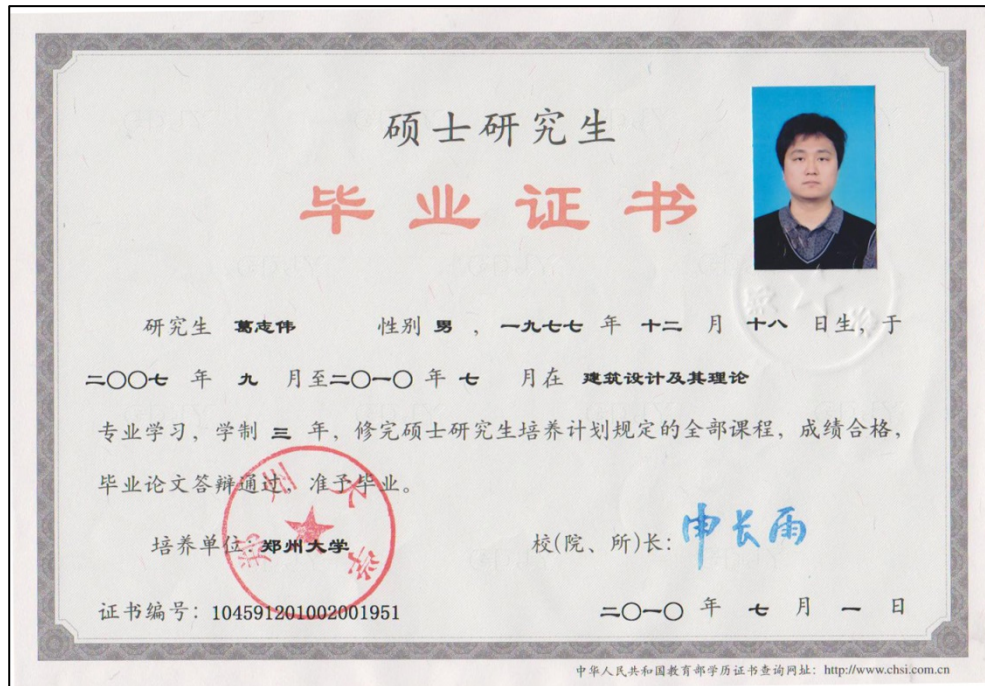 硕士研究生
毕业证书
研究生 葛志伟 性别 男 ，一九七七 年 十二 月 十八 日生，于
二〇〇七 年 九 月至二〇一〇 年 七 月在 建筑设计及其理论
专业学习，学制 三 年，修完硕士研究生培养计划规定的全部课程，成绩合格，
毕业论文答辩通过，准予毕业。
培养单位：郑州大学
校(院、所)长：申长雨
郑州大学
证书编号：104591201002001951
二〇一〇 年 七 月 一 日
中华人民共和国教育部学历证书查询网址：http://www.chsi.com.cn